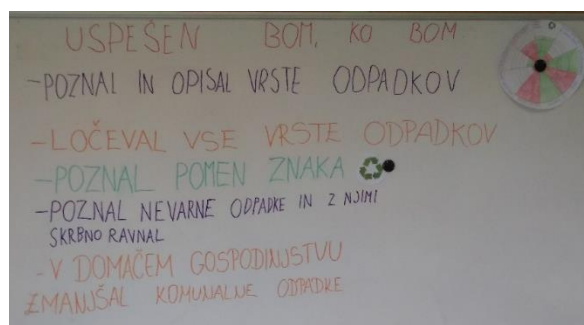 USPEŠEN BOM, KO BOM
-POZNAL IN OPISAL VRSTE ODPADKOV
-LOČEVAL VSE VRSTE ODPADKOV
-POZNAL POMEN ZNAKA
-POZNAL NEVARNE ODPADKE IN Z NJIMI
SKRBNO RAVNAL
-V DOMAČEM GOSPODINJSTVU
ZMANJŠAL KOMUNALNE ODPADKE